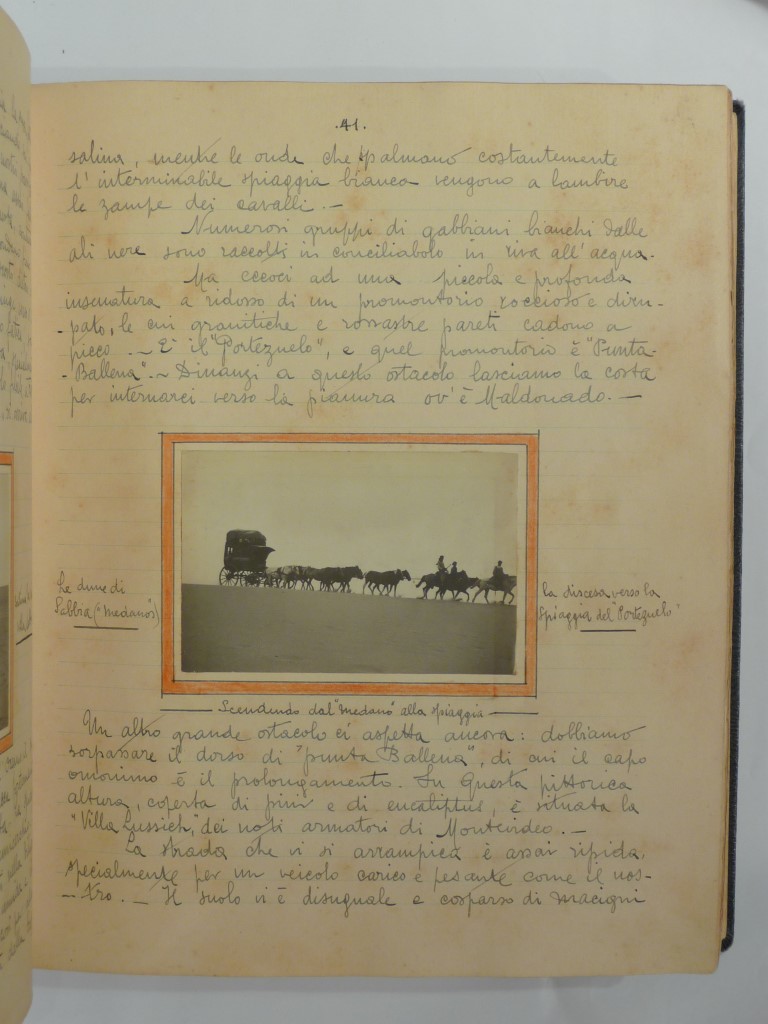 .41.
salina, mentre le onde che spalmano costantemente
l'interminabile spiaggia bianca vengono a lambire
le zampe dei cavalli. —
Numerosi gruppi di gabbiani bianchi dalle
ali nere sono raccolti in conciliabolo in riva all'acqua.
Ma eccoci ad una piccola e profonda
insenatura a ridosso di un promontorio roccioso e diru-
- pato, le cui granitiche e rossastre pareti cadono a
picco. — È il "Portezuelo", e quel promontorio è "Punta-
- Ballena". — Dinanzi a questo ostacolo lasciamo la costa
per internarci verso la pianura ov'è Maldonado. —
Le dune di
Sabbia ("Medanos")
la discesa verso la
spiaggia del "Portezuelo"
Scendendo dal "Medano" alla spiaggia
Un altro grande ostacolo ci aspetta ancora: dobbiamo
sorpassare il dorso di "punta Ballena", di cui il capo
omonimo è il prolungamento. In questa pittorica
altura, coperta di pini e di eucaliptus, è situata la
"Villa Lussich," dei noti armatori di Montevideo. —
La strada che vi si arrampica è assai ripida,
specialmente per un veicolo carico e pesante come il nos-
- tro. — Il suolo vi è disuguale e cosparso di macigni